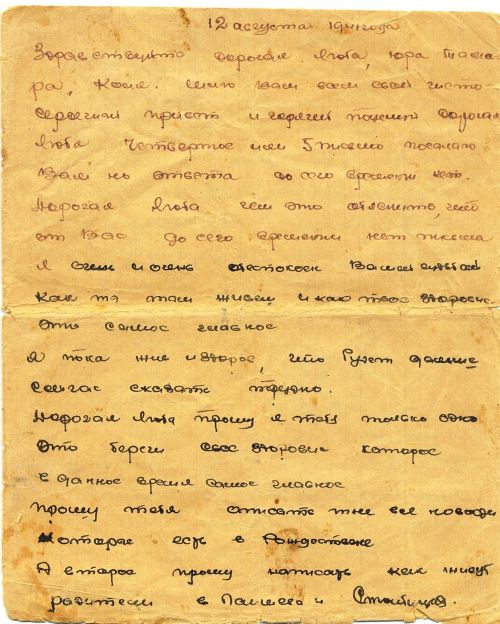 12 августа 1941 года
Здравствуйте дорогая Люба, Юра Тама-
ра, Коля. Шлю вам всем свой чисто-
сердечный привет и горячий поцелуй Дорогая
Люба Четвертое или 5 письмо посылаю
Вам но ответа до сего времени нет.
Дорогая Люба чем это объяснить, что
от Вас до сего времени нет письма
Я очень и очень обеспокоен Вашей судьбой
Как ты там живеш и как твое здоровье
Это самое главное
Я пока жив и здоров, что будет далше
сейчас сказать трудно.
Дорогая Люба прошу я тебя только одно
Это береги свое здоровие которое
в данное время самое главное
Прошу тебя описать мне все новости
которые есть в Рождествене
А второе прошу написать как живут
родители в и